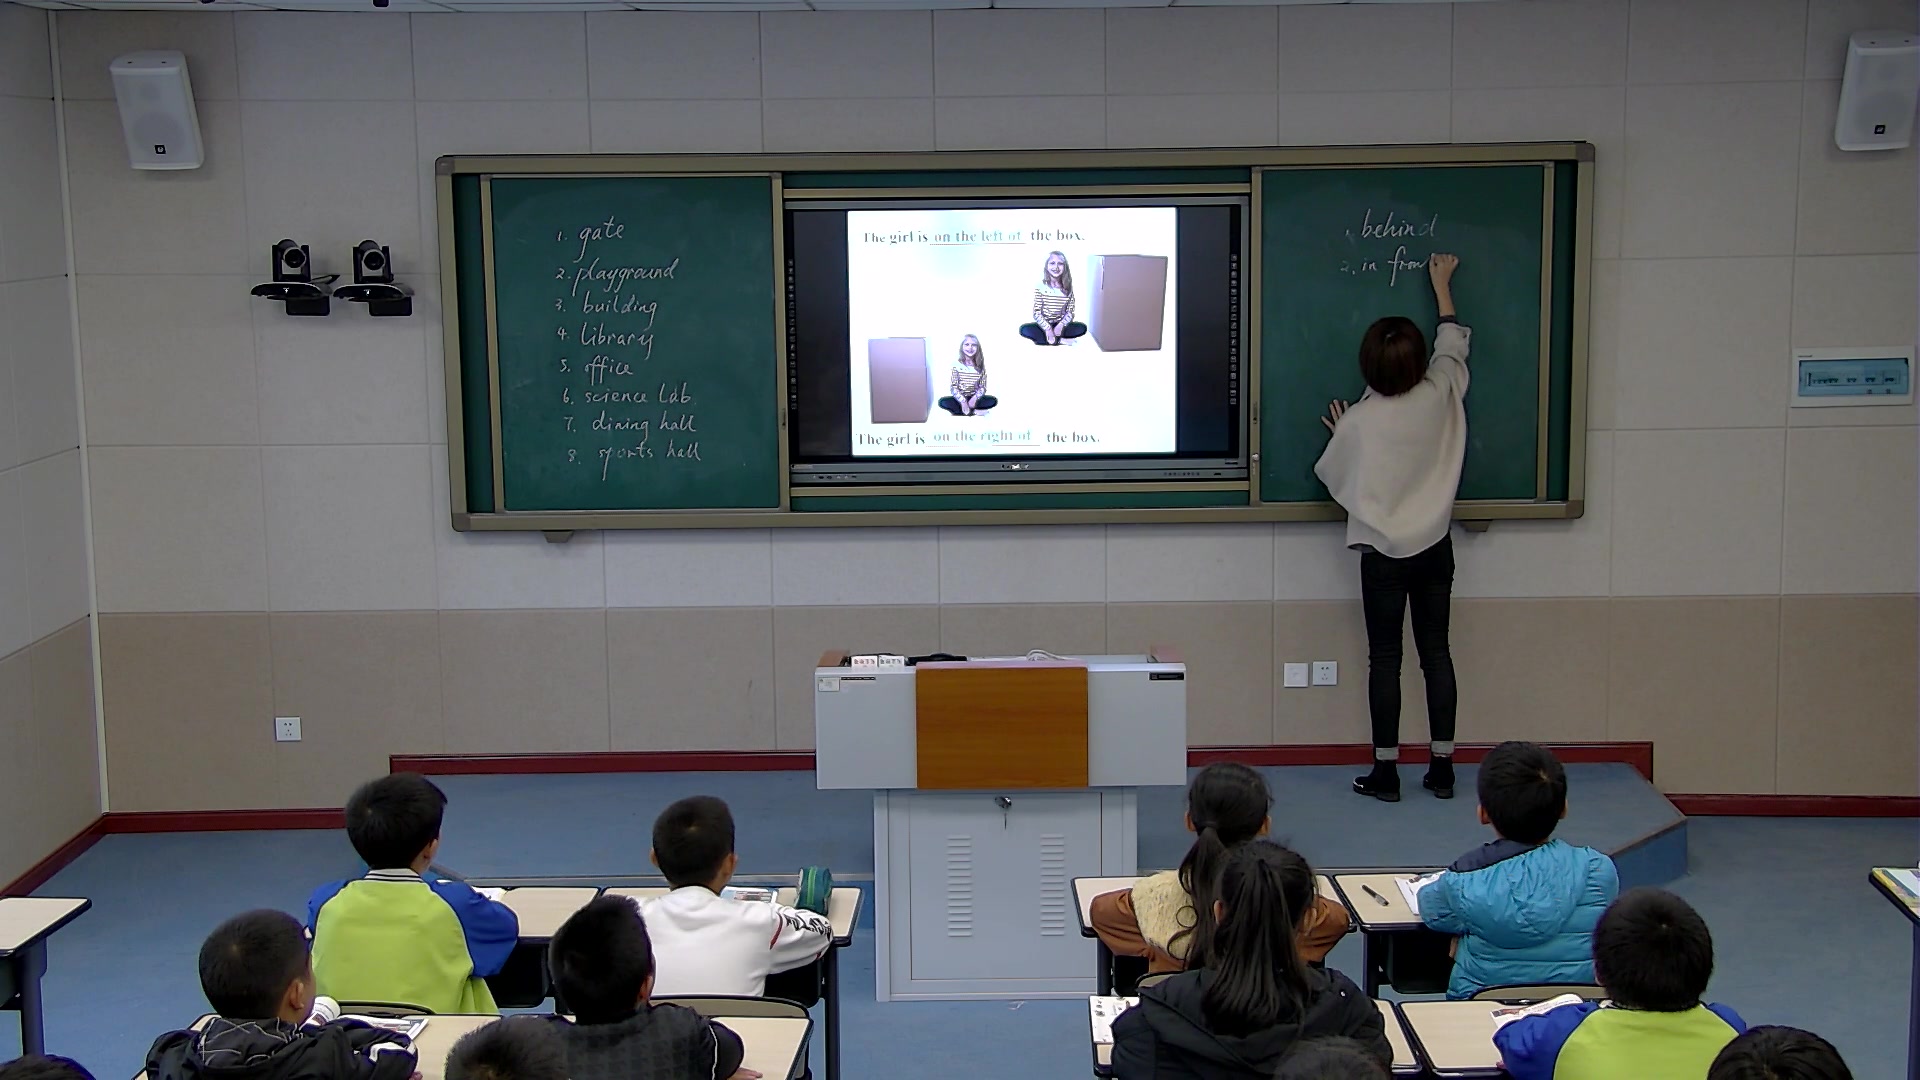 1. gate
2. playground
3. building
4. library
5. office
6. science Lab
7. dining hall
8. sports hall
The girl is on the left of the box.
The girl is on the right of the box.
1. behind
2. in fron